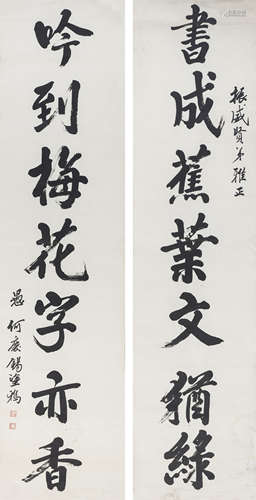 振威賢弟雅正
書成蕉葉文猶綠
吟到梅花字亦香
愚何慶錫塗鴉